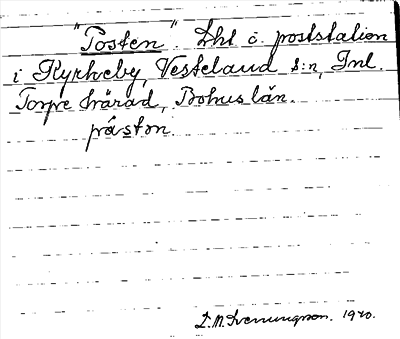 "Posten". Lht o. poststation
i Kyrkeby, Vesteland s:n, Inl.
Torpe härad, Bohuslän.
påston
D. M. Svenungsson. 1920.